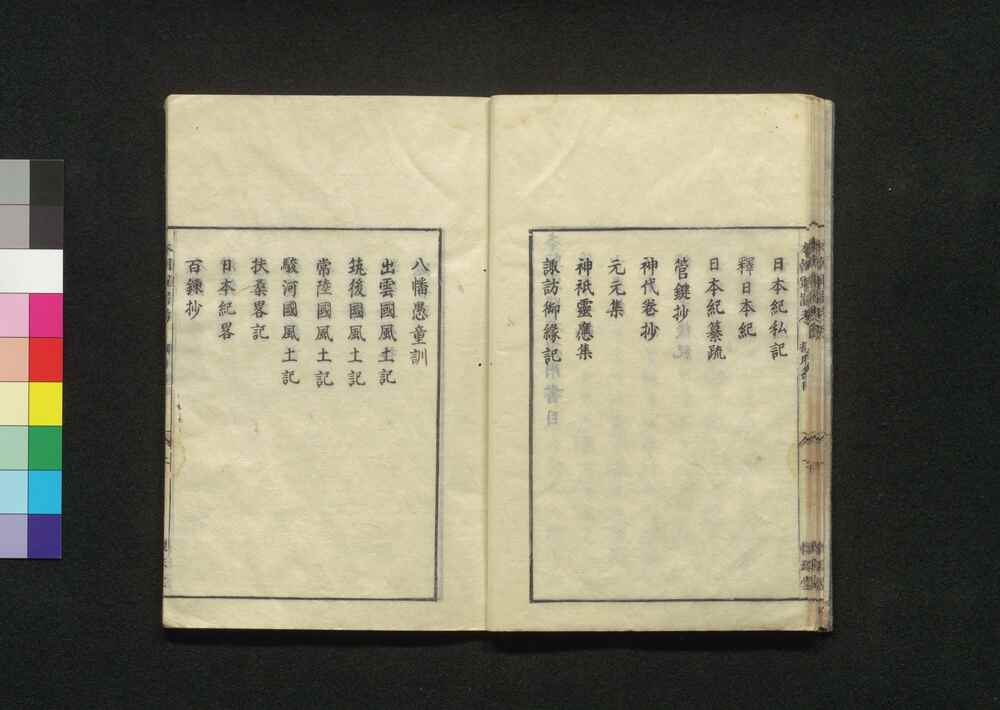 日本紀私記
釋日本紀
日本紀纂疏
管鍵抄
神代卷抄
元元集
神祇靈應集
諏訪御緣記
八幡愚童訓
出雲國風土記
筑後國風土記
常陸國風土記
駿河國風土記
扶桑畧記
日本紀畧
百鍊抄